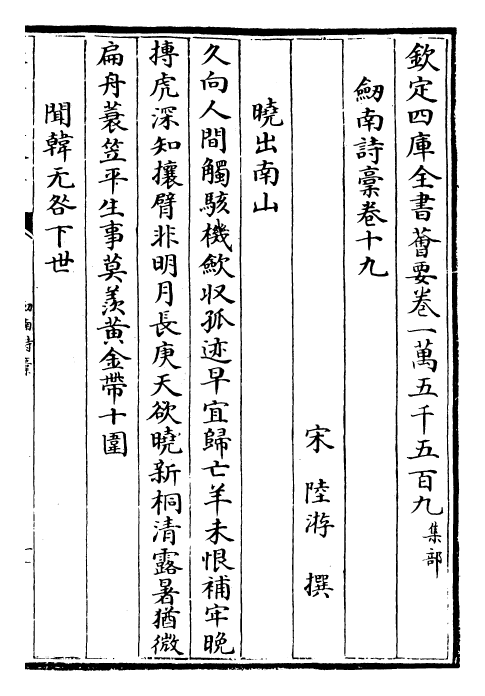 欽定四庫全書薈要卷一萬五千五百九集部
劒南詩稾卷十九
宋陸游撰
曉出南山
久向人間觸駭機歛収孤迹早宜歸亡羊未恨補牢晚
摶虎深知攘臂非明月長庚天欲曉新桐清露暑猶微
扁舟蓑笠平生事莫羨黄金帶十圍
聞韓无咎下世